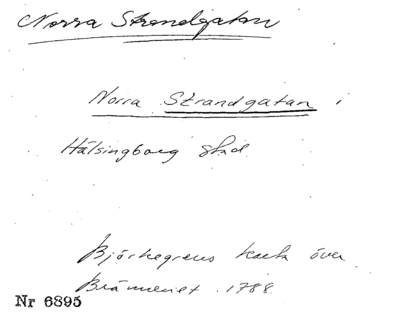 Norra Strandgatan
Norra Strandgatan i
Hälsingborg stad
Björkegrens karta över
Bränneriet. 1788.
Nr 6895